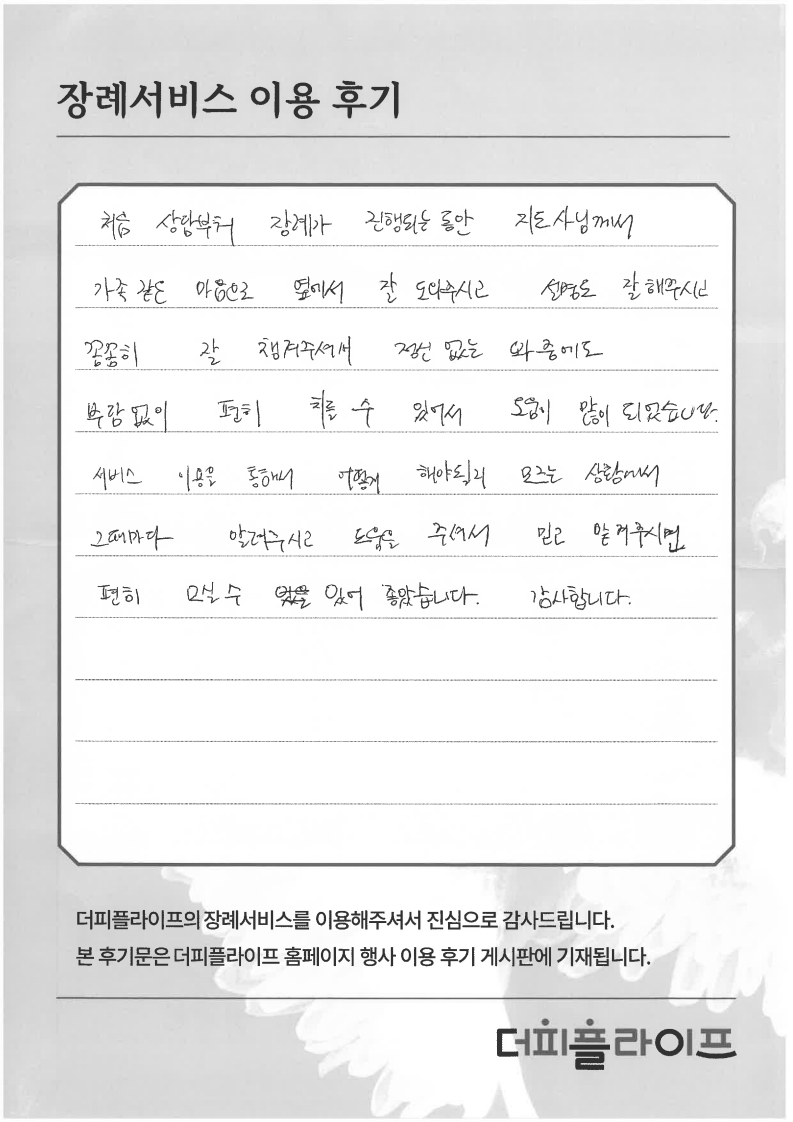 장례서비스 이용 후기
처음 상담부터 장례가 진행되는 동안 지도사님께서
가족 같은 마음으로 옆에서 잘 도와주시고 설명도 잘 해주시고
꼼꼼히 잘 챙겨주셔서 정신 없는 와중에도
부담 없이 편히 치를 수 있어서 도움이 많이 되었습니다.
서비스 이용을 통해서 어떻게 해야될지 모르는 상황에서
그때마다 알려주시고 도움을 주셔서 믿고 맡겨주시면
편히 모실 수 있어 좋았습니다. 감사합니다.
더피플라이프의 장례서비스를 이용해주셔서 진심으로 감사드립니다.
본 후기문은 더피플라이프 홈페이지 행사 이용 후기 게시판에 기재됩니다.
더피플라이프